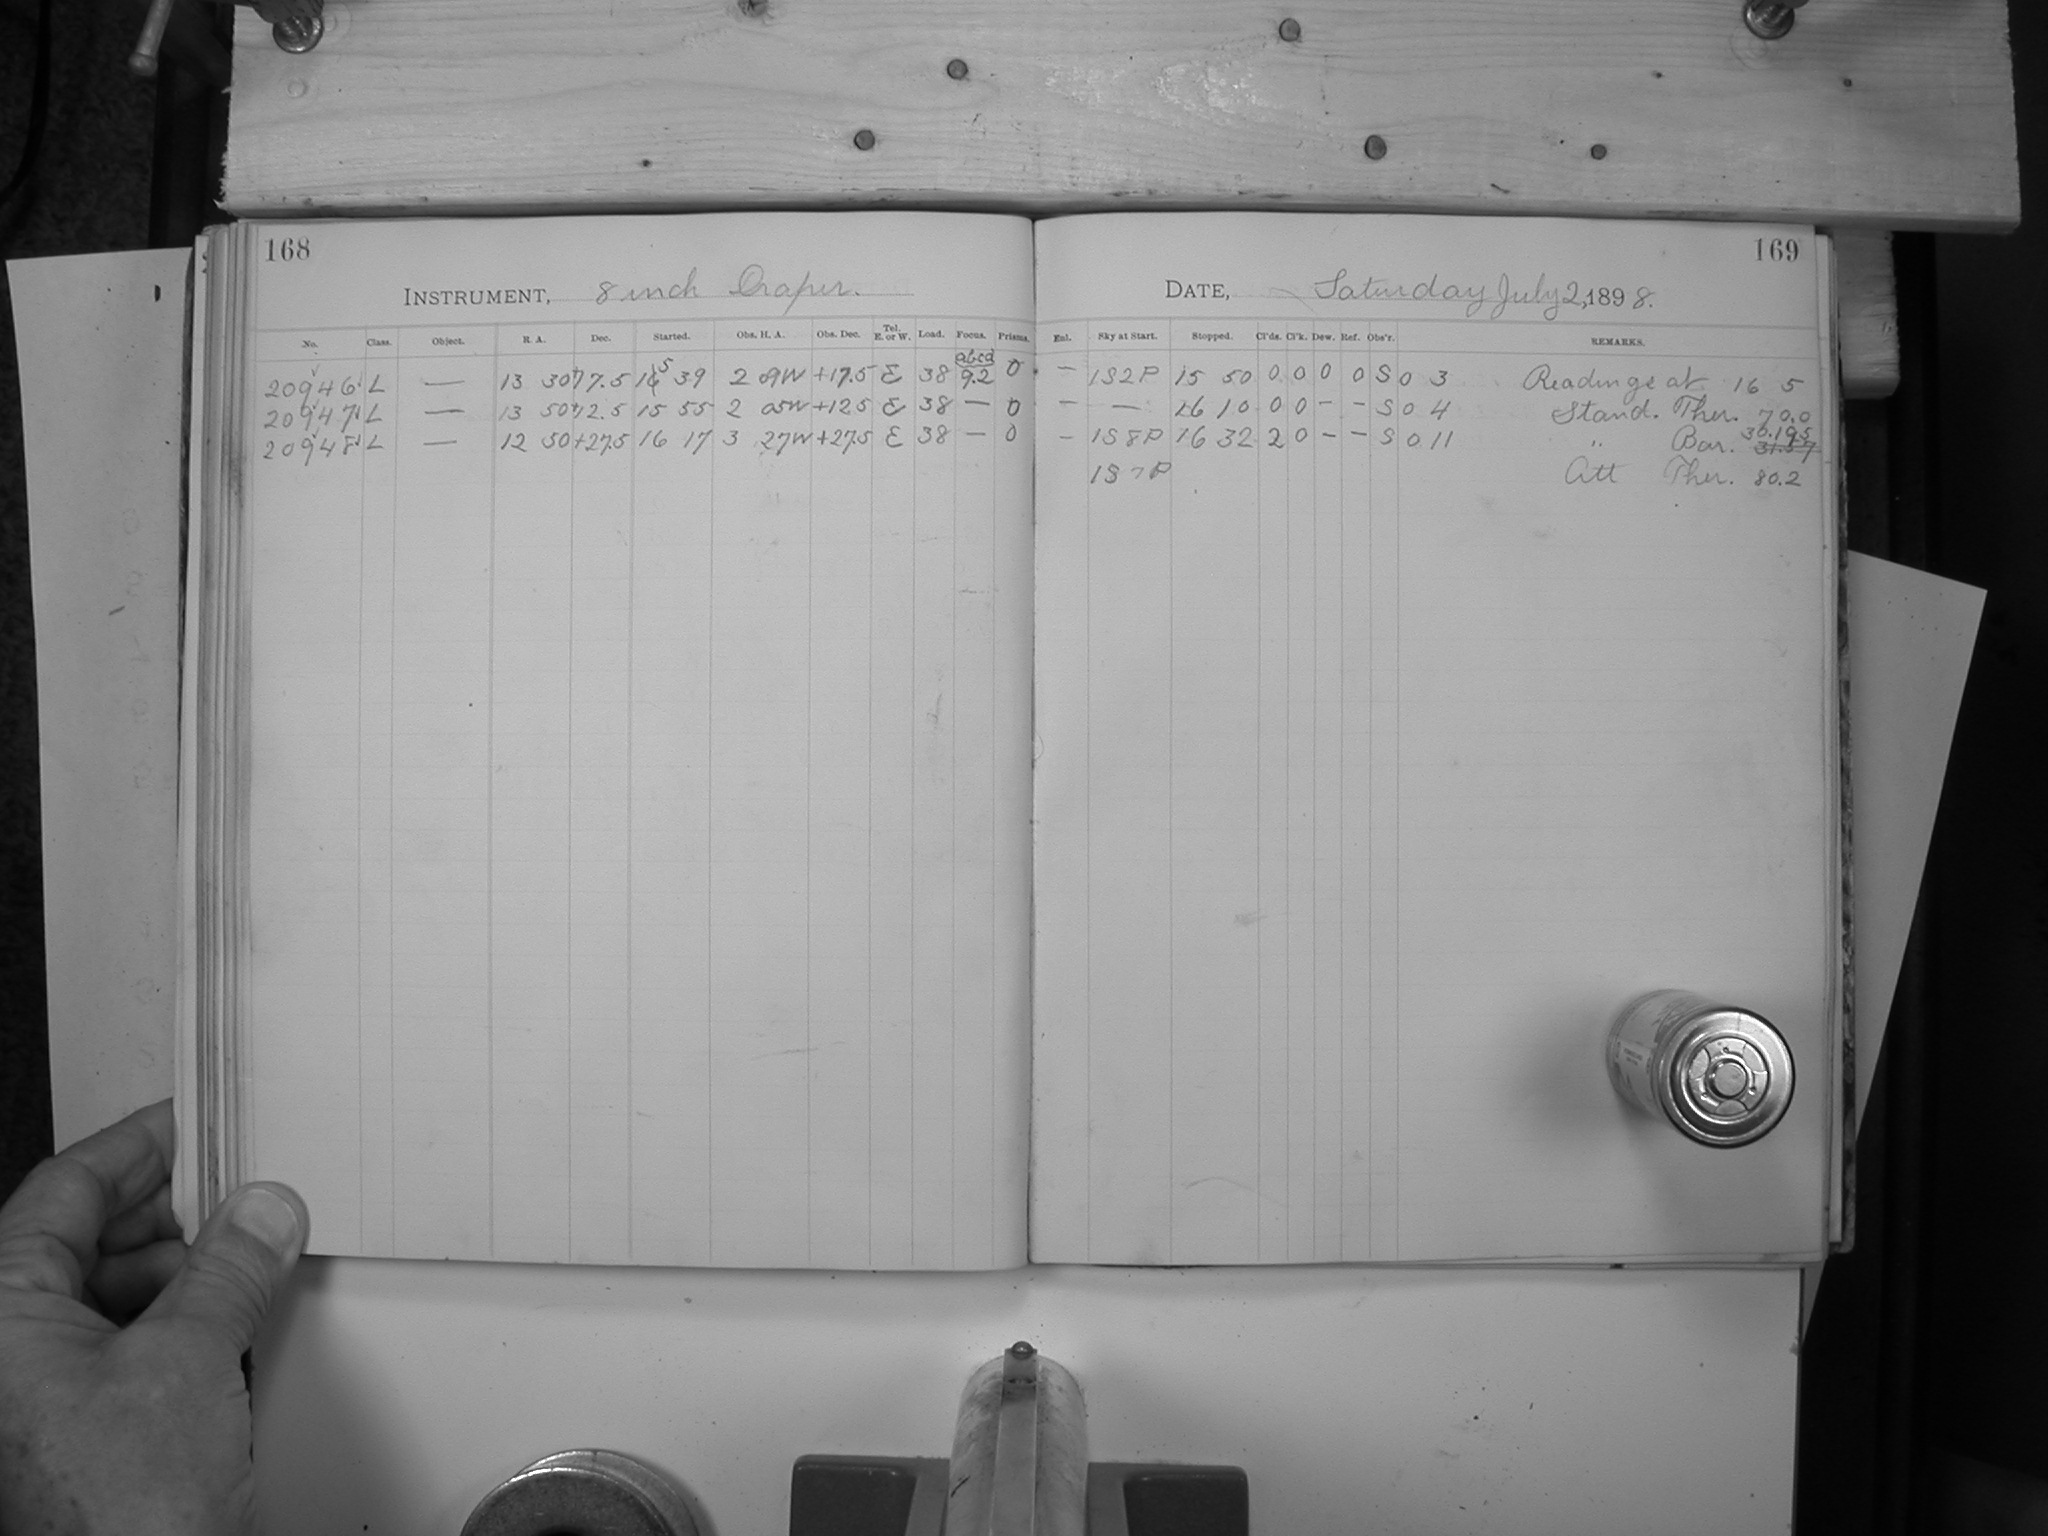 168
INSTRUMENT, 8 inch Draper.
No. Class. Object. R. A. Dec. Started. Obs. H. A. Obs. Dec. Tel. E. or W. Load. Focus. Prisms.
abcd
20946 L — 13 30 +17.5 15 39 2 09W +17.5 E 38 9.2 0
20947 L — 13 50 +12.5 15 55 2 05W +12.5 E 38 — 0
20948 L — 12 50 +27.5 16 17 3 27W +27.5 E 38 — 0
169
DATE, Saturday July 2, 1898.
Enl. Sky at Start. Stopped. Cl'ds. Cl'k. Dew. Ref. Obs'r. REMARKS.
— 1S2P 15 50 0 0 0 0 S 0 3 Readings at 16 5
— — 16 10 0 0 — — S 0 4 Stand. Ther. 70.0
— 1S8P 16 32 2 0 — — S 0 11 " Bar. 30.195
1S7P Att Ther. 80.2